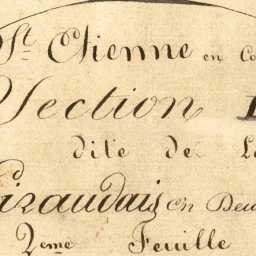 St Etienne en Co
Section
dite de La
Giraudais en Deu
2eme Feuille